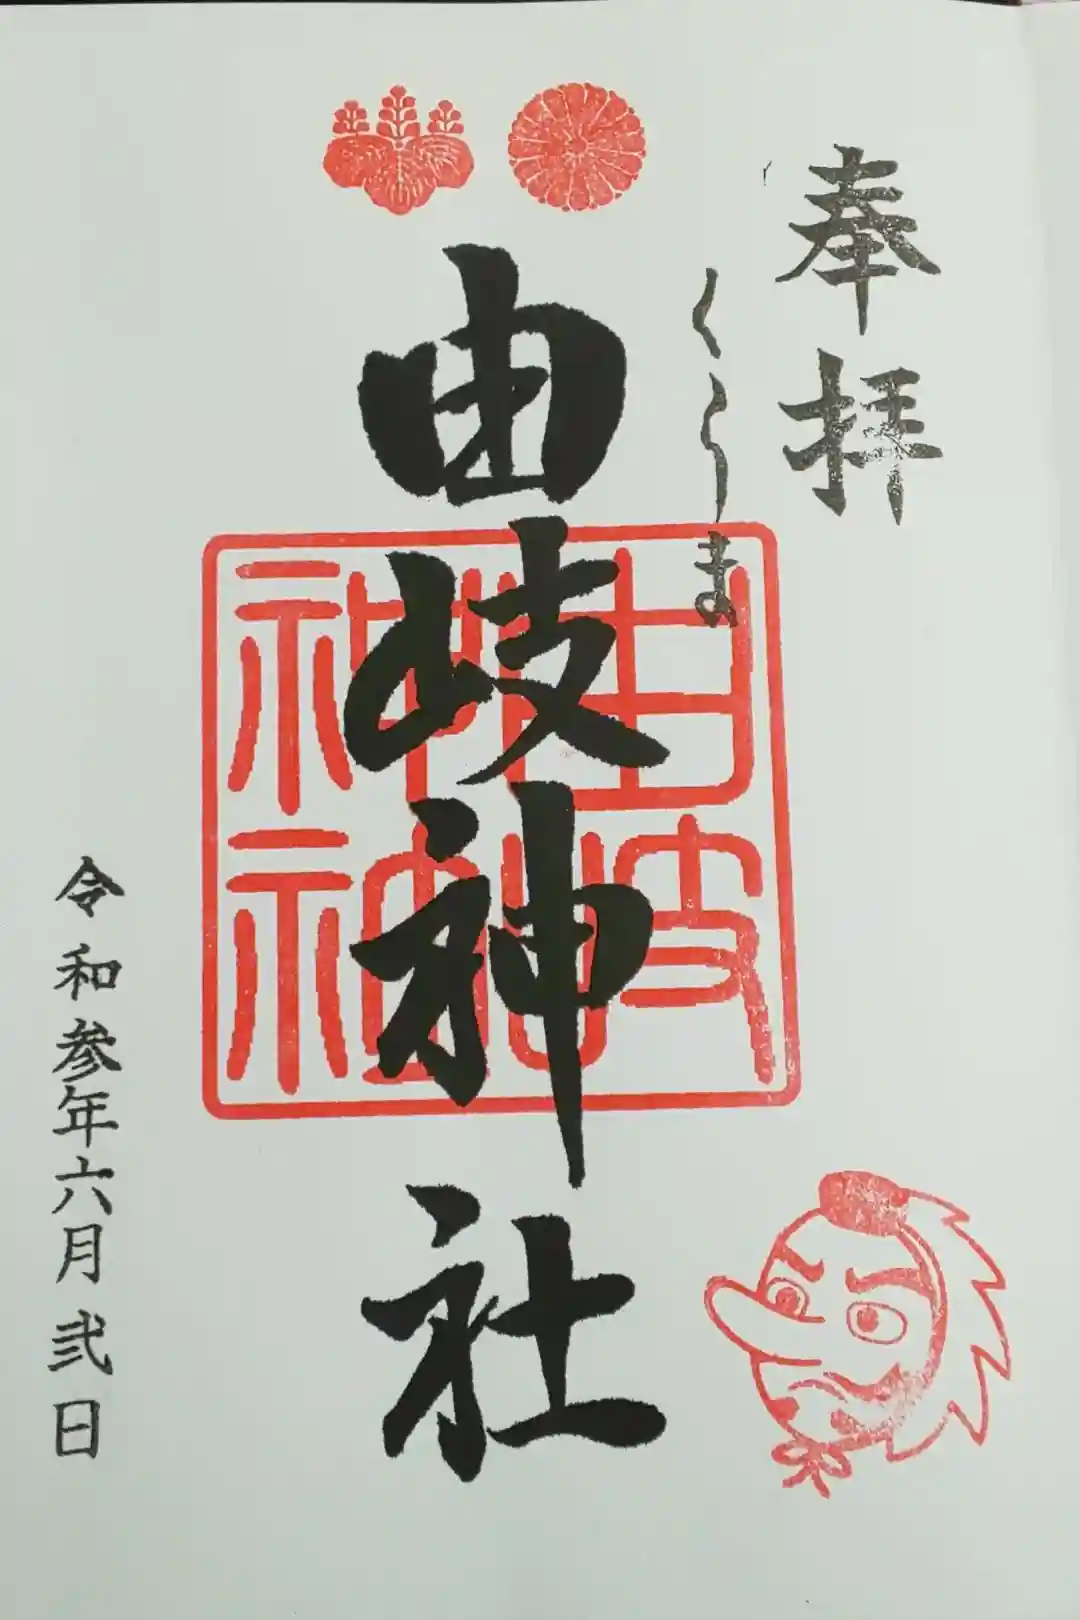 奉拝
くらま
由岐神社
由岐神社
令和参年六月弐日